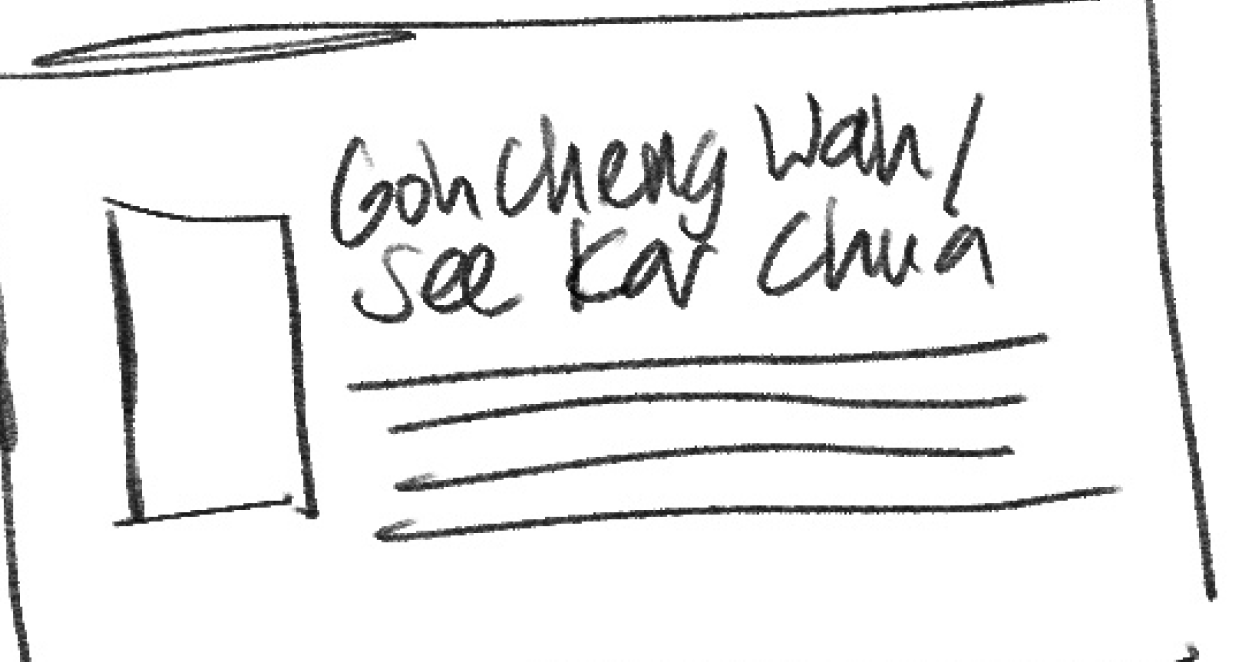 Goh Cheng Wah/
See Kar Chua